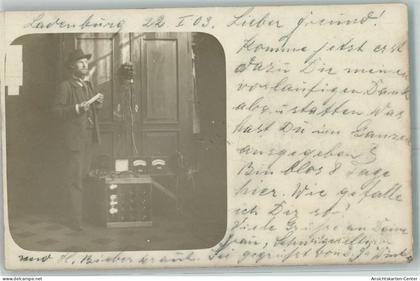 Ladenburg 22 I 03. Lieber Freund!
Komme jetzt erst
dazu Dir meinen
vorläufigen Dank
abzustatten Was
hast Du im Ganzen
ausgegeben?
Bin blos 8 Tage
hier. Wie gefalle
ich Dir so?
Viele Grüße an Deine
Frau, Schwiegeltern
und H. Bieber Sei gegrüßt von
www.Ansichtskarten-Center.de